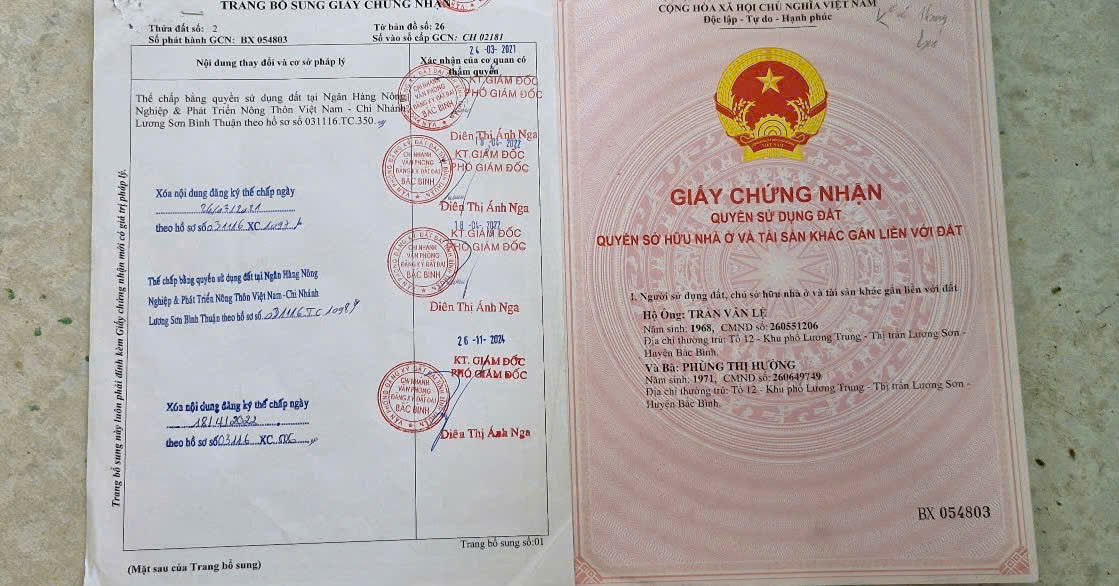 TRANG BỔ SUNG GIẤY CHỨNG NHẬN
Thửa đất số: 2
Tờ bản đồ số: 26
Số phát hành GCN: BX 054803
Số vào sổ cấp GCN: CH 02181
Nội dung thay đổi và cơ sở pháp lý
Xác nhận của cơ quan có
thẩm quyền
24-03-2021
Thế chấp bằng quyền sử dụng đất tại Ngân Hàng Nông
Nghiệp & Phát Triển Nông Thôn Việt Nam - Chi Nhánh
Lương Sơn Bình Thuận theo hồ sơ số 031116.TC.350.
KT.GIÁM ĐỐC
PHÓ GIÁM ĐỐC
CHI NHÁNH
VĂN PHÒNG
ĐĂNG KÝ ĐẤT ĐAI
BẮC BÌNH
Diên Thị Ánh Nga
Xóa nội dung đăng ký thế chấp ngày
theo hồ sơ số 031116 XC
18-04-2022
KT.GIÁM ĐỐC
PHÓ GIÁM ĐỐC
CHI NHÁNH
VĂN PHÒNG
ĐĂNG KÝ ĐẤT ĐAI
BẮC BÌNH
Diên Thị Ánh Nga
Thế chấp bằng quyền sử dụng đất tại Ngân Hàng Nông
Nghiệp & Phát Triển Nông Thôn Việt Nam - Chi Nhánh
Lương Sơn Bình Thuận theo hồ sơ số 031116.TC.1098
18-04-2022
KT.GIÁM ĐỐC
PHÓ GIÁM ĐỐC
CHI NHÁNH
VĂN PHÒNG
ĐĂNG KÝ ĐẤT ĐAI
BẮC BÌNH
Diên Thị Ánh Nga
Xóa nội dung đăng ký thế chấp ngày
18/4/2022
theo hồ sơ số 03116 XC
26-11-2024
KT. GIÁM ĐỐC
PHÓ GIÁM ĐỐC
CHI NHÁNH
VĂN PHÒNG
ĐĂNG KÝ ĐẤT ĐAI
BẮC BÌNH
Diên Thị Ánh Nga
Trang bổ sung này luôn phải đính kèm Giấy chứng nhận mới có giá trị pháp lý.
Trang bổ sung số:01
(Mặt sau của Trang bổ sung)
CỘNG HÒA XÃ HỘI CHỦ NGHĨA VIỆT NAM
Độc lập - Tự do - Hạnh phúc
VIỆT NAM
GIẤY CHỨNG NHẬN
QUYỀN SỬ DỤNG ĐẤT
QUYỀN SỞ HỮU NHÀ Ở VÀ TÀI SẢN KHÁC GẮN LIỀN VỚI ĐẤT
I. Người sử dụng đất, chủ sở hữu nhà ở và tài sản khác gắn liền với đất
Hộ Ông: TRẦN VĂN LỆ
Năm sinh: 1968, CMND số: 260551206
Địa chỉ thường trú: Tổ 12 - Khu phố Lương Trung - Thị trấn Lương Sơn -
Huyện Bắc Bình.
Và Bà: PHÙNG THỊ HƯỜNG
Năm sinh: 1971, CMND số: 260649749
Địa chỉ thường trú: Tổ 12 - Khu phố Lương Trung - Thị trấn Lương Sơn -
Huyện Bắc Bình
BX 054803